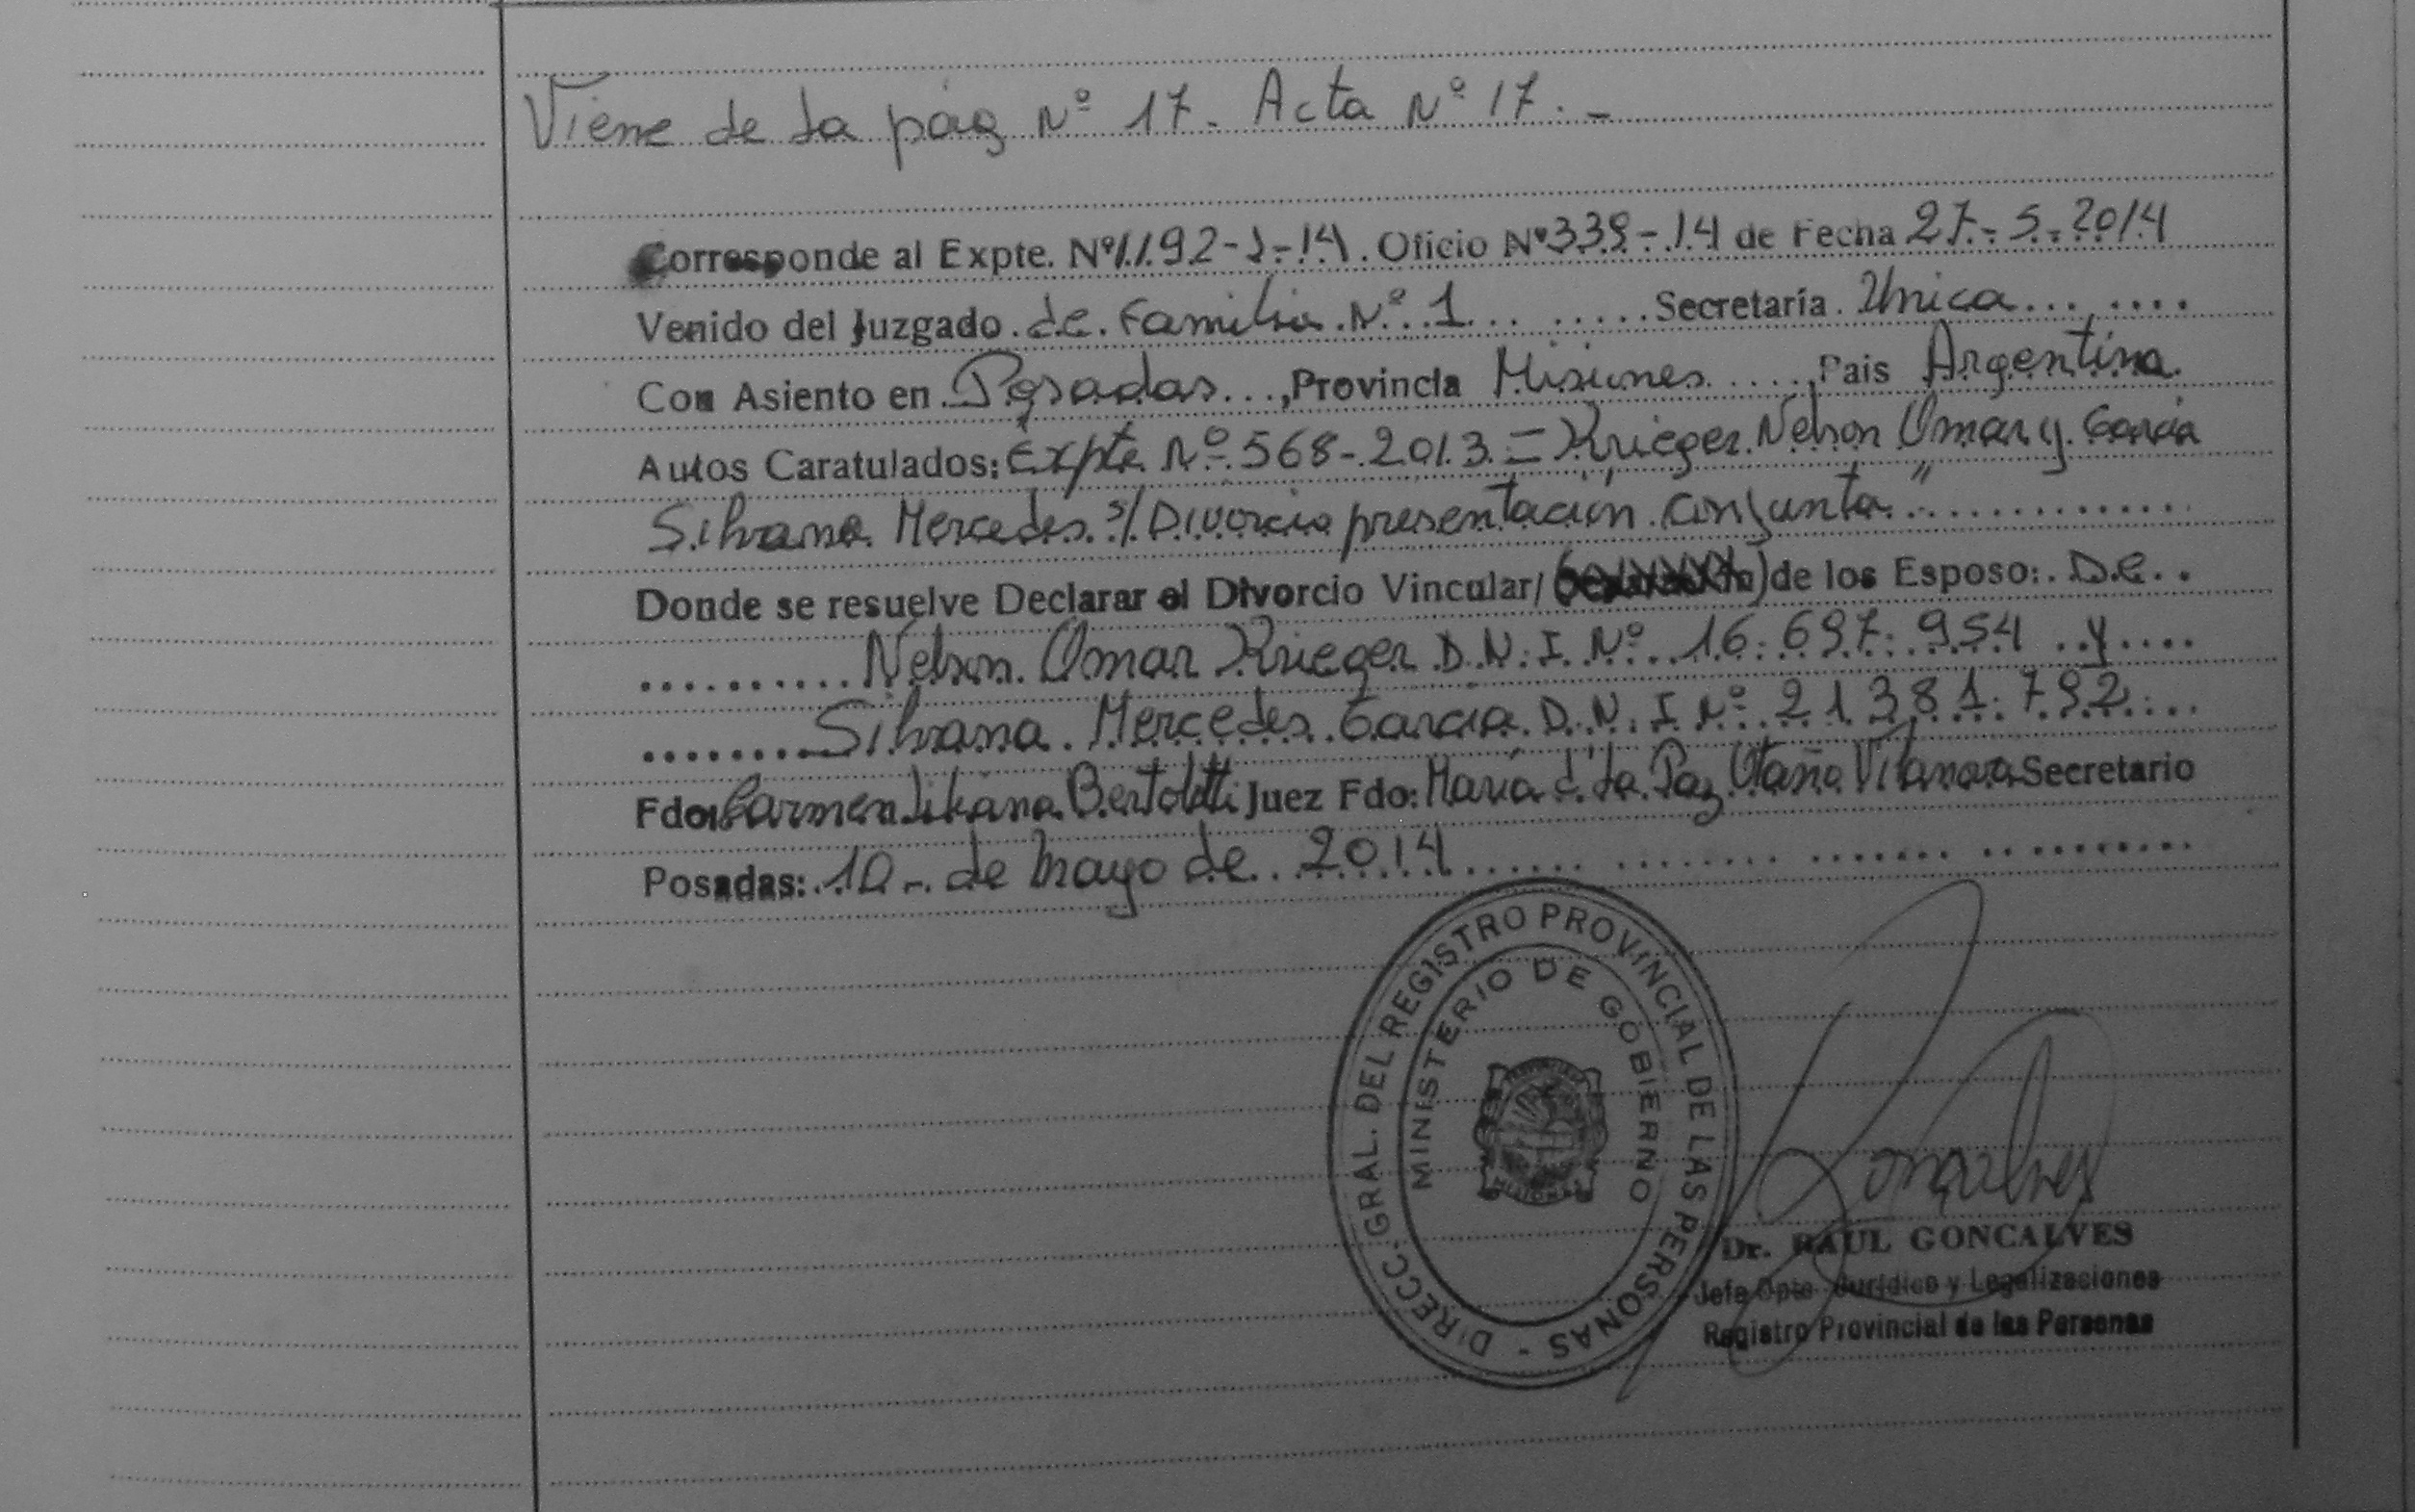 Viene de la pág Nº 17. Acta Nº 17. -
Corresponde al Expte. Nº 1192-J-14. Oficio Nº 339-14 de Fecha 27-5-2014
Venido del Juzgado de Familia Nº 1 Secretaría Unica
Con Asiento en Posadas, Provincia Misiones, Pais Argentina
Autos Caratulados: Expte Nº 568-2013 = Krieger Nelson Omar y Garcia
Silvana Mercedes s/ Divorcio presentación conjunta"
Donde se resuelve Declarar el Divorcio Vincular/ ( ) de los Esposo: De
Nelson Omar Krieger D.N.I. Nº 16.697.954 y
Silvana Mercedes Garcia D.N.I Nº 21.381.792
Fdo: Carmen Liliana Bertoletti Juez Fdo: María d' la Paz Vilanova Secretario
Posadas: 10 - de Mayo de 2014
DIRECC. GRAL. DEL REGISTRO PROVINCIAL DE LAS PERSONAS -
MINISTERIO DE GOBIERNO
MISIONES
Dr. RAUL GONCALVES
Jefe Dpto. Jurídico y Legalizaciones
Registro Provincial de las Personas